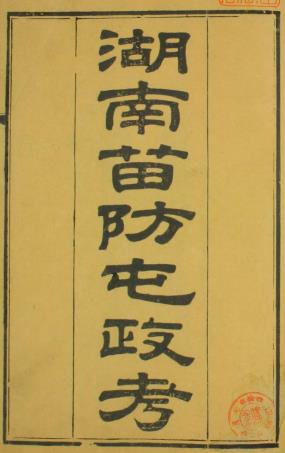 湖南苗防屯政考